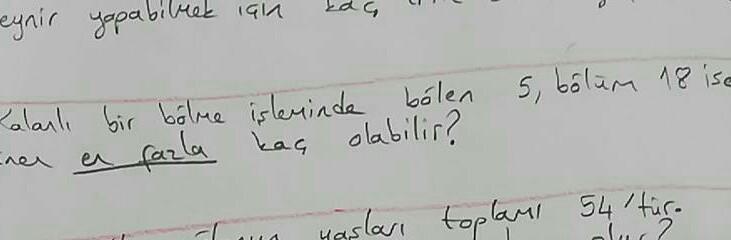 eynir yapabilmek için kaç
Kalanlı bir bölme işleminde bölen 5, bölüm 18 ise
nen en fazla kaç olabilir?
yaşları toplamı 54'tür.
olur?